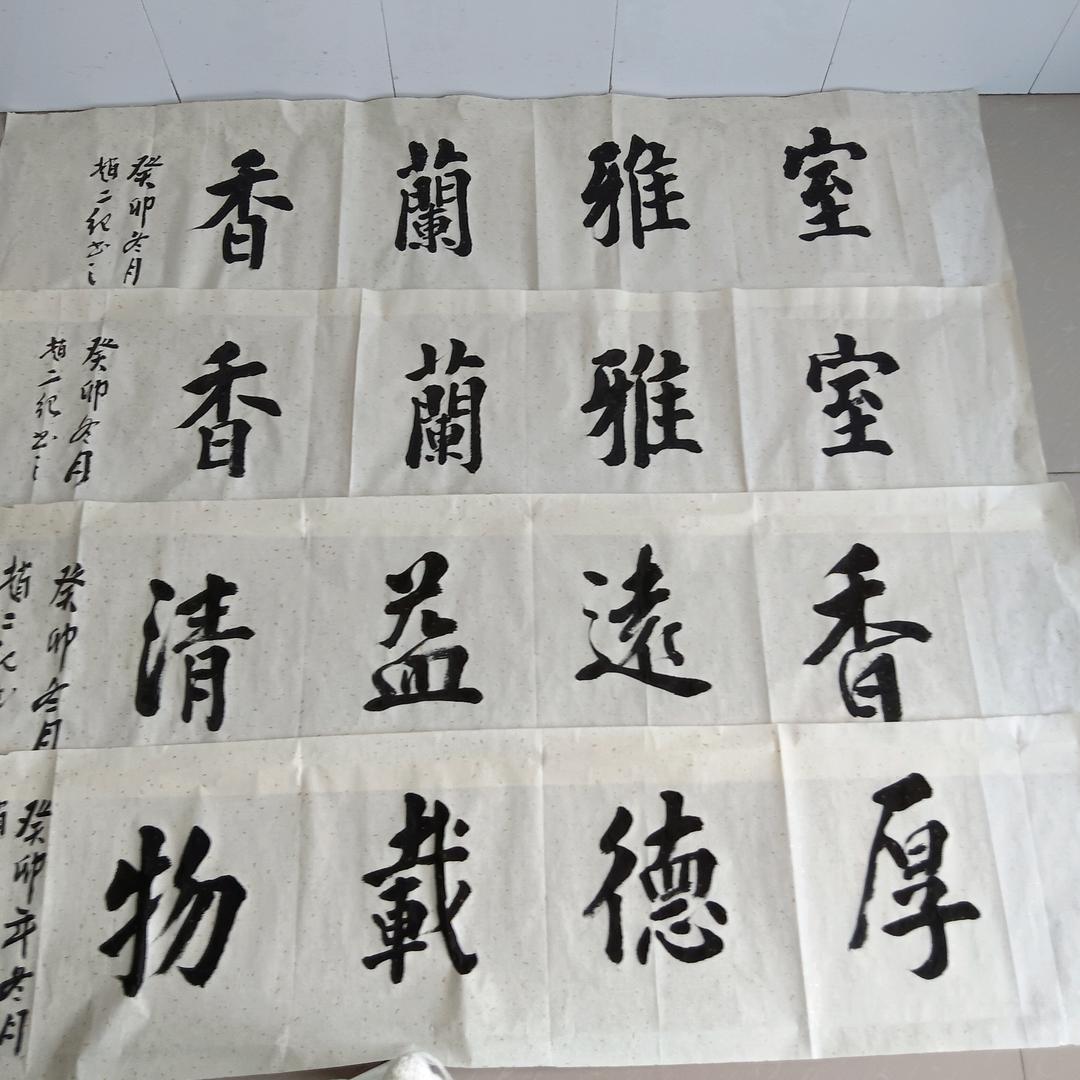 室雅蘭香
癸卯冬月
趙二紀书之
室雅蘭香
癸卯冬月
趙二紀书之
香遠益清
癸卯冬月
趙二紀书
厚德載物
癸卯年冬月